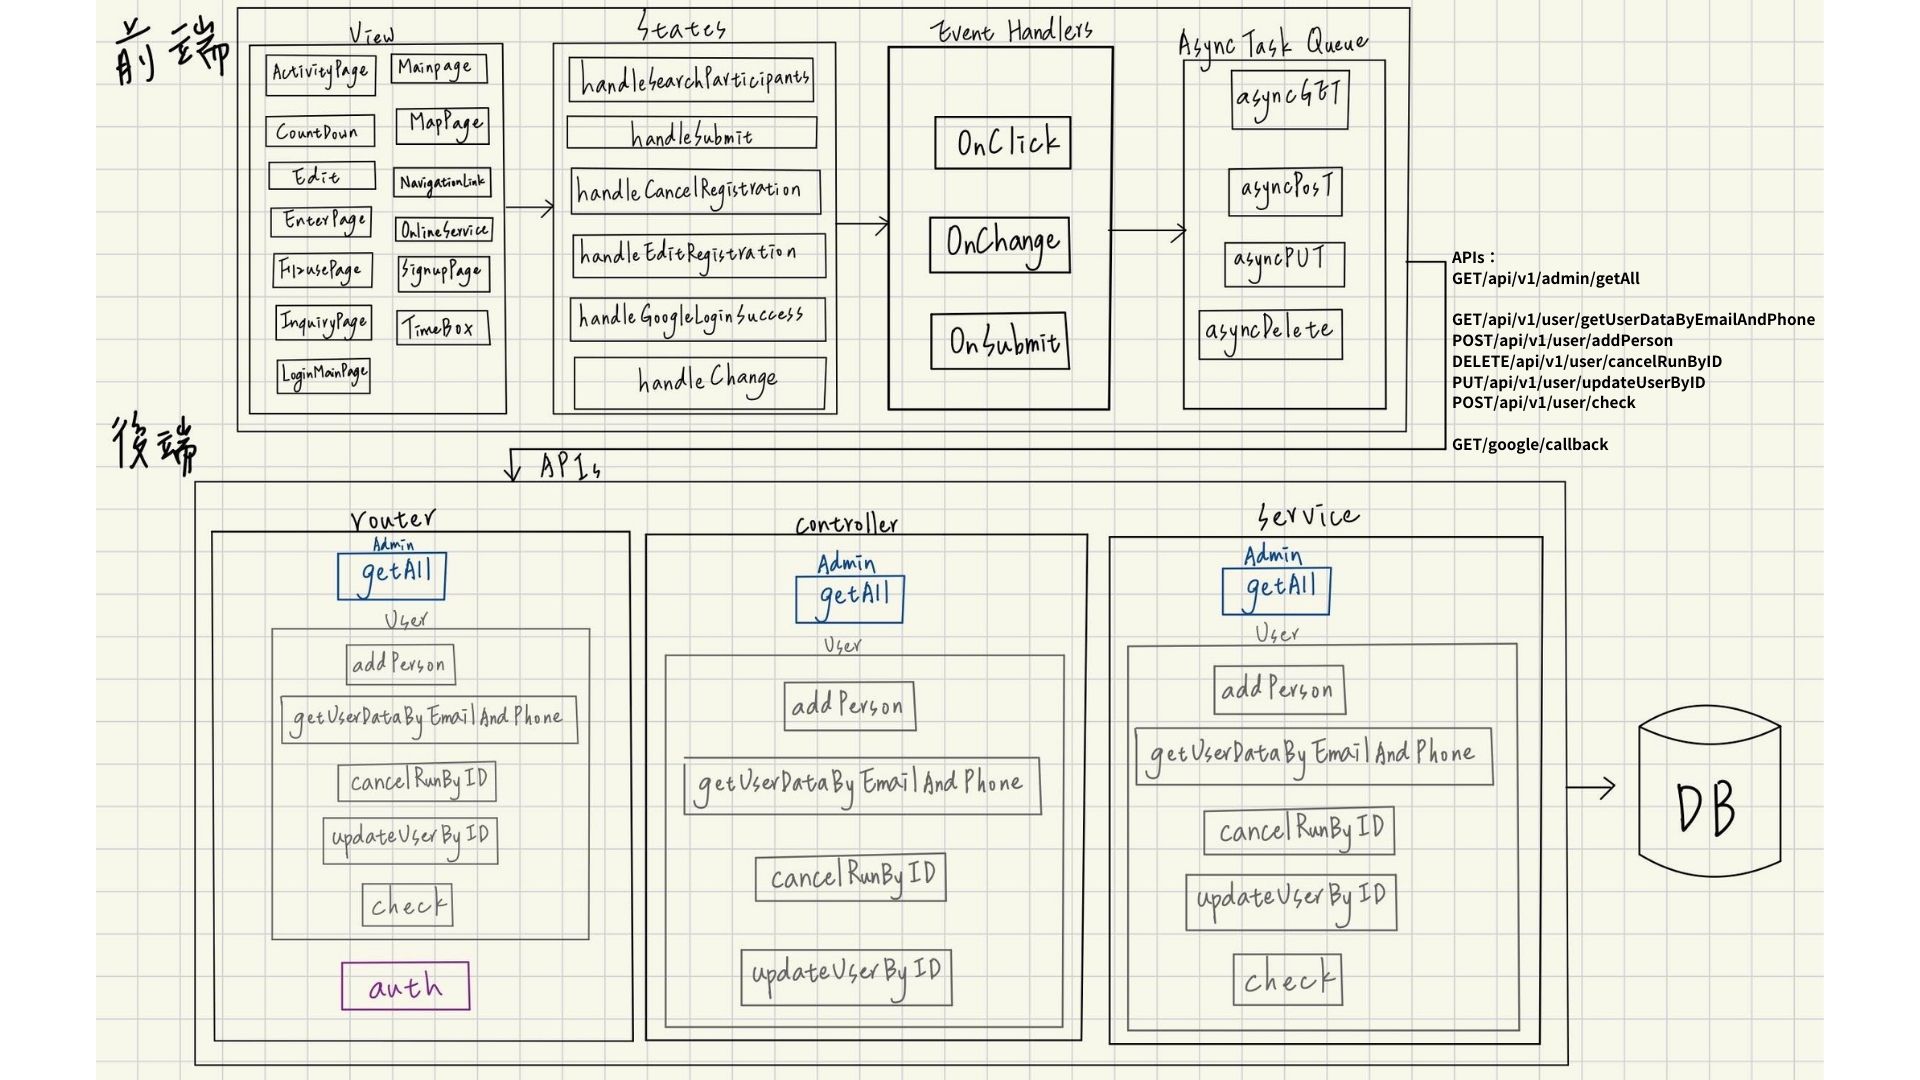 前端
View
ActivityPage
Mainpage
CountDown
MapPage
Edit
NavigationLink
EnterPage
OnlineService
SignupPage
InquiryPage
TimeBox
LoginMainPage
States
handleSearchParticipants
handleSubmit
handleCancelRegistration
handleEditRegistration
handleGoogleLoginSuccess
handleChange
Event Handlers
OnClick
OnChange
OnSubmit
Async Task Queue
asyncGET
asyncPosT
asyncPUT
asyncDelete
APIs：
GET/api/v1/admin/getAll
GET/api/v1/user/getUserDataByEmailAndPhone
POST/api/v1/user/addPerson
DELETE/api/v1/user/cancelRunByID
PUT/api/v1/user/updateUserByID
POST/api/v1/user/check
GET/google/callback
後端
APIs
router
Admin
getAll
User
addPerson
getUserDataByEmailAndPhone
cancelRunByID
updateUserByID
check
auth
controller
Admin
getAll
User
addPerson
getUserDataByEmailAndPhone
cancelRunByID
updateUserByID
service
Admin
getAll
User
addPerson
getUserDataByEmailAndPhone
cancelRunByID
updateUserByID
check
DB